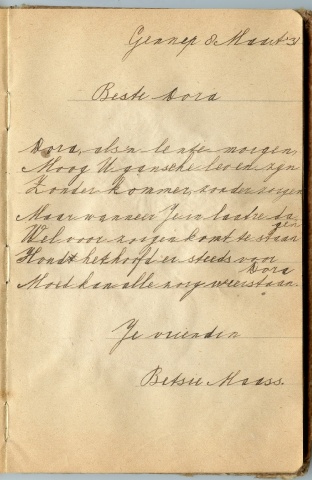 Gennep 8 Maart '31
Beste Dora
Dora, als 'n lente morgen,
Moog U gansche leven zijn
Zonder kommer, zonder zorgen
Maar wanneer Je in laatre da
gen
Wel voor zorgen komt te staan
Houdt het hoofd er steeds voor
Dora
Moed kan alle zorg weerstaan.
Je vriendin
Betsie Maass.